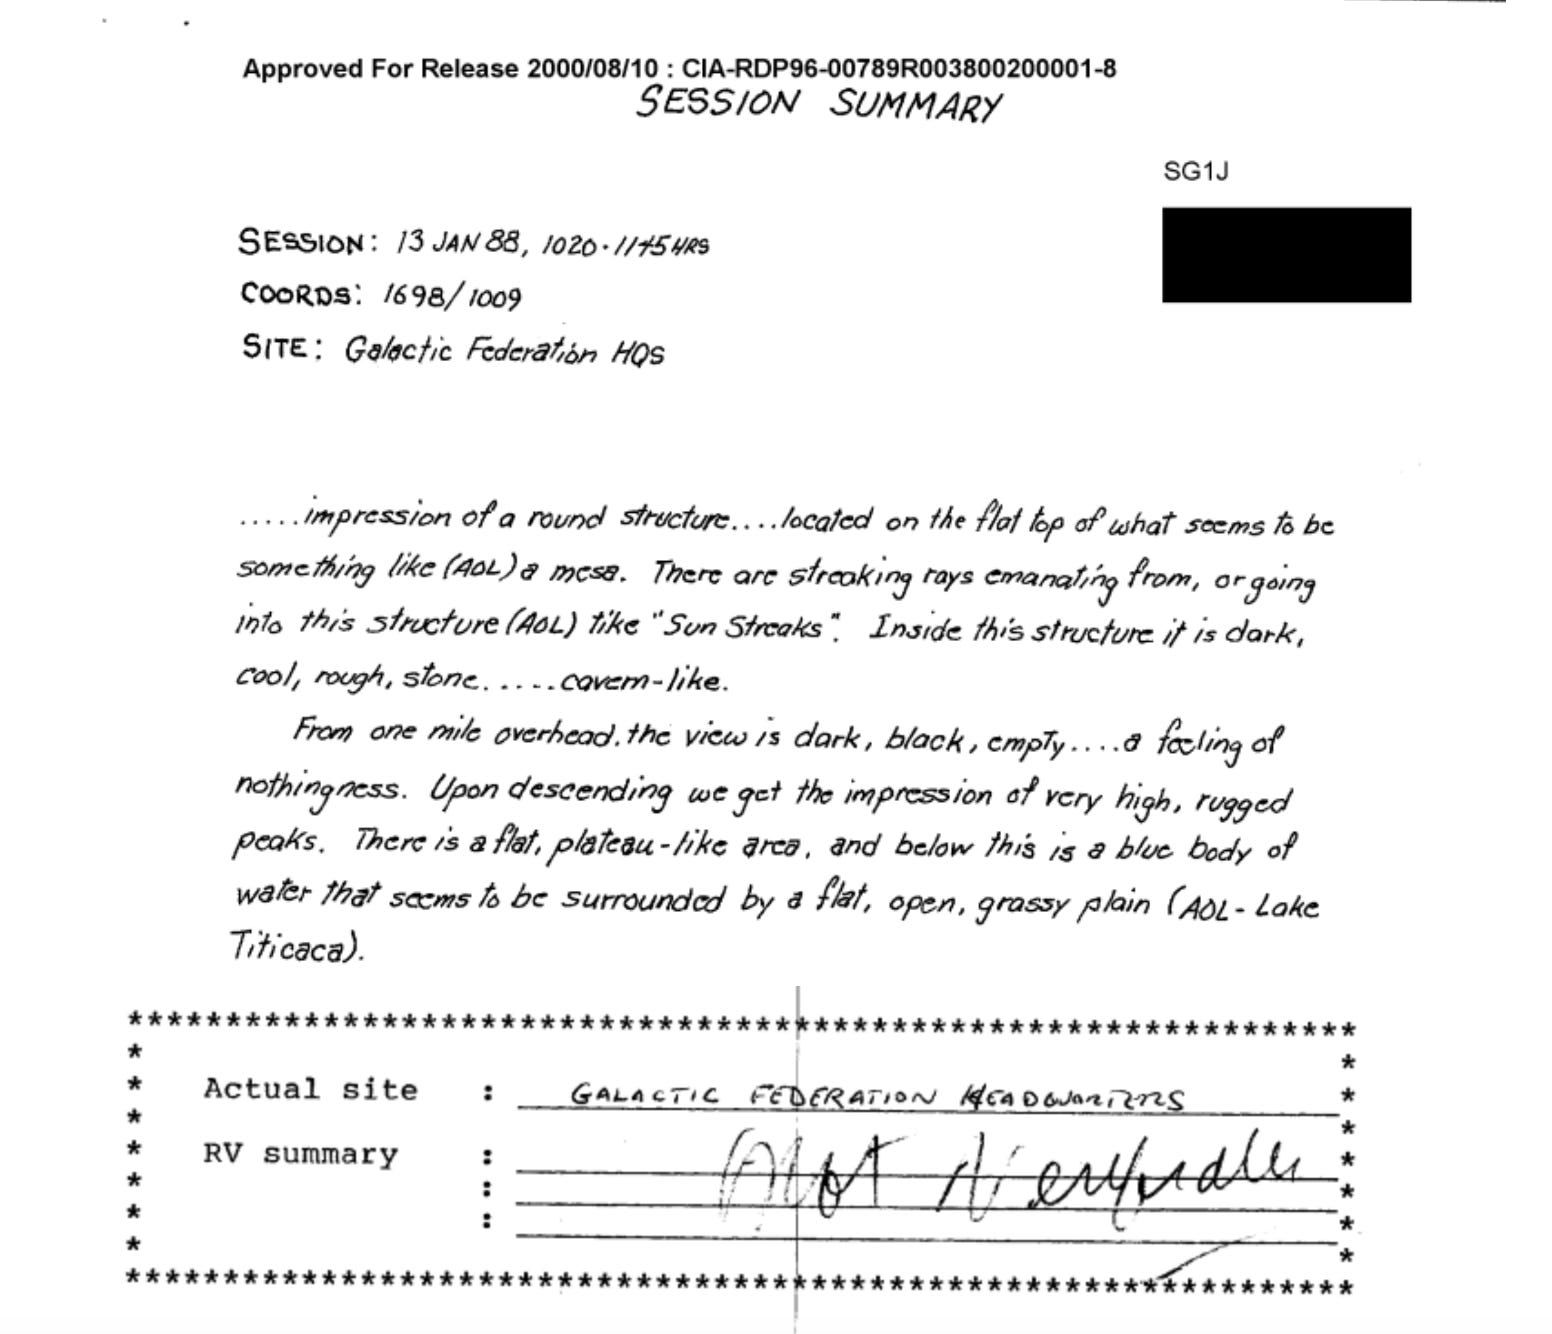 Approved For Release 2000/08/10 : CIA-RDP96-00789R003800200001-8
SESSION SUMMARY
SG1J
SESSION: 13 JAN 88, 1020-1145 HRS
COORDS: 1698/1009
SITE: Galactic Federation HQs
.....impression of a round structure....located on the flat top of what seems to be
something like (AOL) a mesa. There are streaking rays emanating from, or going
into this structure (AOL) like "Sun Streaks". Inside this structure it is dark,
cool, rough, stone.....cavern-like.
From one mile overhead, the view is dark, black, empty....a feeling of
nothingness. Upon descending we get the impression of very high, rugged
peaks. There is a flat, plateau-like area, and below this is a blue body of
water that seems to be surrounded by a flat, open, grassy plain (AOL- Lake
Titicaca).
*****************************************************************
* Actual site : GALACTIC FEDERATION HEADQUARTERS *
* RV summary : Not Verifiable *
* : *
* : *
*****************************************************************